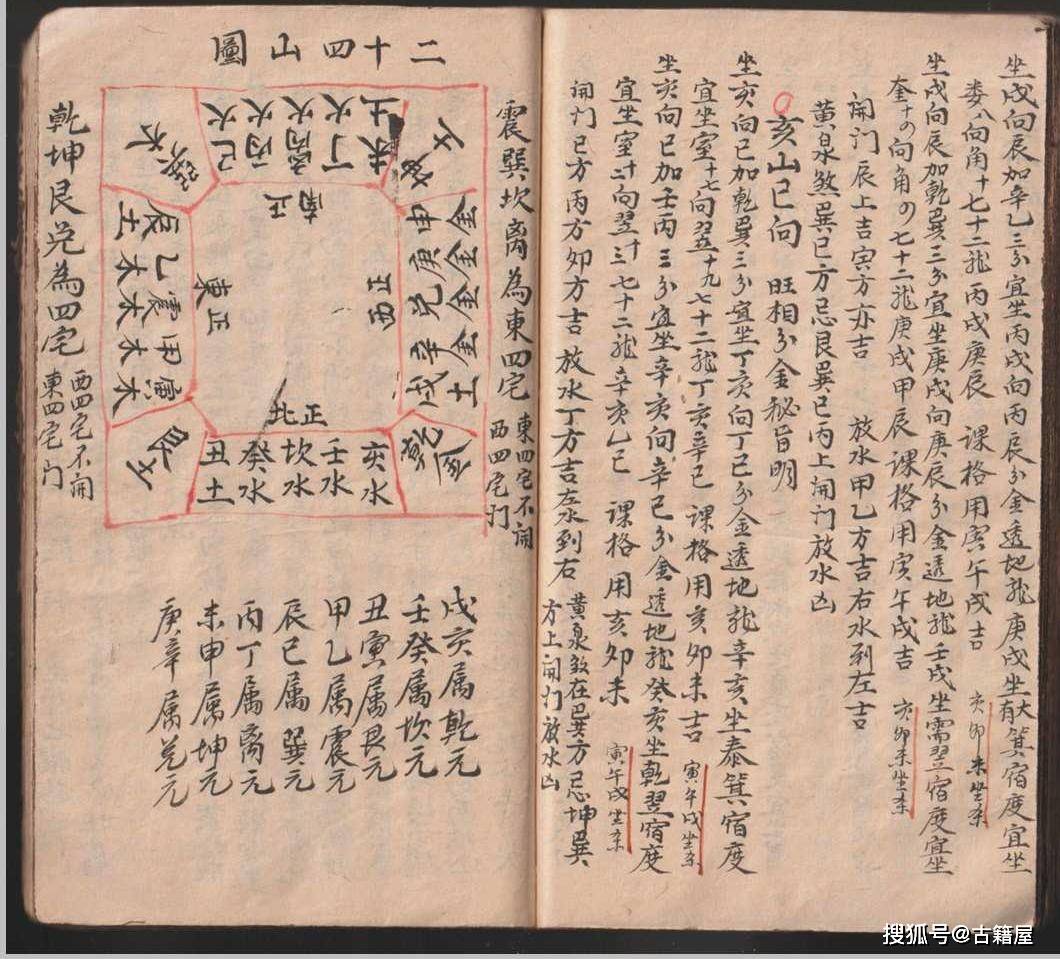 坐戌向辰加辛乙三分宜坐丙戌向丙辰分金透地龍庚戌坐大有箕宿度宜坐
婁八向角十七十二龍丙戌庚辰 課格用寅午戌吉 亥卯未坐杀
坐戌向辰加乾巽三分宜坐庚戌向庚辰分金透地龍壬戌坐需翌宿度宜坐
奎十の向角の七十二龍庚戌甲辰課格用寅午戌吉 亥卯未坐杀
開门辰上吉寅方亦吉 放水甲乙方吉右水到左吉
黄泉煞巽巳方忌艮巽巳丙上開门放水凶
亥山巳向 旺相分金秘旨明
坐亥向巳加乾巽三分宜坐丁亥向丁巳分金透地龍辛亥坐泰箕宿度
宜坐室十七向翌十九七十二龍丁亥辛巳 課格用亥卯未吉 寅午戌坐杀
坐亥向巳加壬丙三分宜坐辛亥向辛巳分金透地龍癸亥坐乾翌宿度
宜坐室 向翌 七十二龍辛亥乙巳 課格用亥卯未 寅午戌坐杀
開门巳方丙方卯方吉 放水丁方吉左水到右 黄泉煞在巽方忌坤巽
方上開门放水凶
二十四山圖
震巽坎离為東四宅 東四宅不開
西四宅门
乾坤艮兑為四宅 西四宅不開
東四宅门
正南
正西
正東
正北
未土
丁火
丙火
巳火
坤土
申金
庚金
兑金
辛金
戌土
乾金
亥水
壬水
坎水
癸水
丑土
艮土
寅木
甲木
震木
乙木
辰土
巽木
戌亥属乾元
壬癸属坎元
丑寅属艮元
甲乙属震元
辰巳属巽元
丙丁属离元
未申属坤元
庚辛属兑元
搜狐号@古籍屋